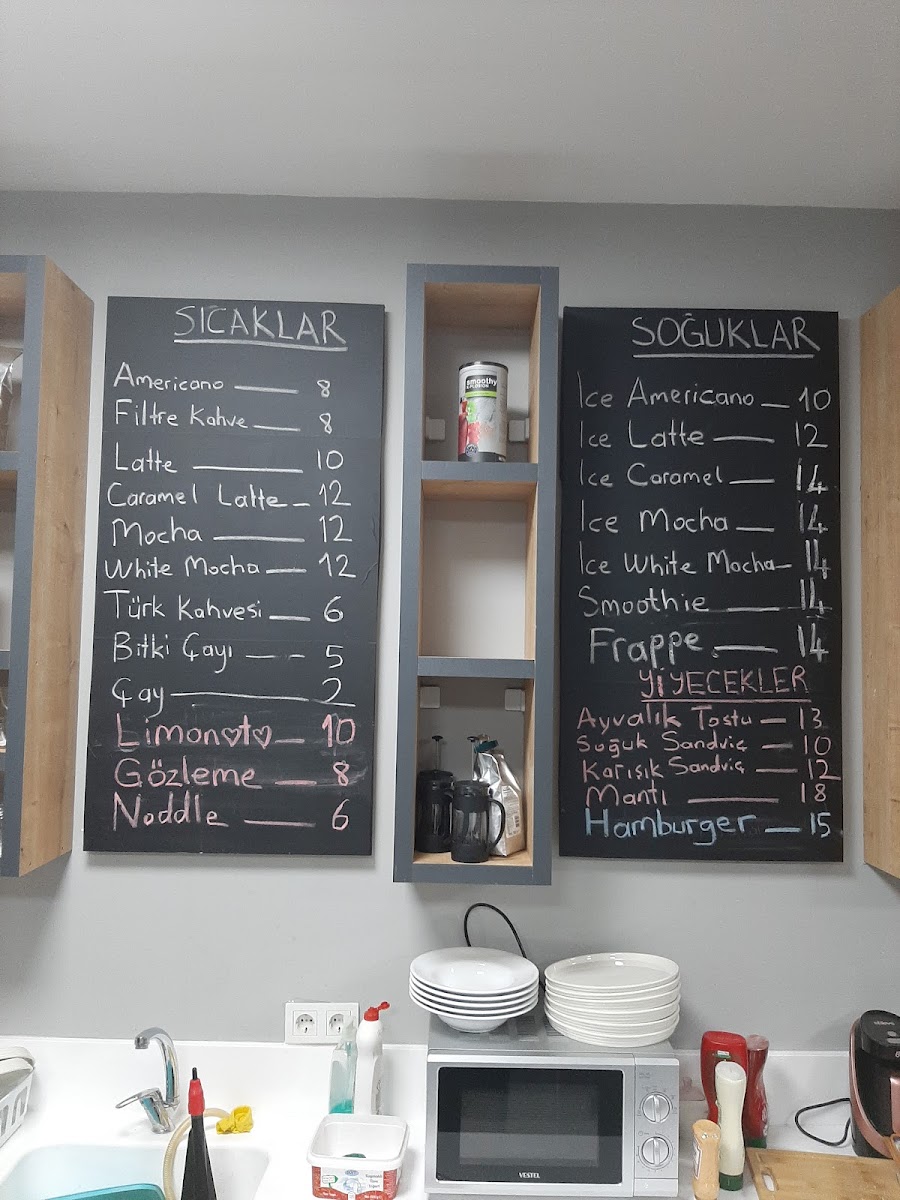 SICAKLAR
Americano — 8
Filtre Kahve — 8
Latte — 10
Caramel Latte — 12
Mocha — 12
White Mocha — 12
Türk Kahvesi — 6
Bitki Çayı — 5
Çay — 2
Limon♡t♡ — 10
Gözleme — 8
Noddle — 6
smoothy
SOĞUKLAR
Ice Americano — 10
Ice Latte — 12
Ice Caramel — 14
Ice Mocha — 14
Ice White Mocha — 14
Smoothie — 14
Frappe — 14
YİYEÇEKLER
Ayvalık Tostu — 13
Soğuk Sandviç — 10
Karışık Sandviç — 12
Mantı — 18
Hamburger — 15
VESTEL